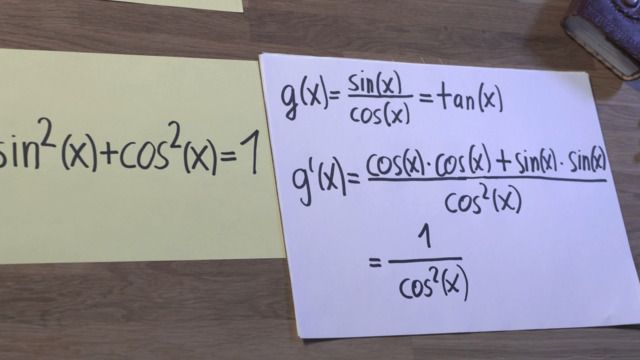 sin²(x)+cos²(x)=1
g(x)= sin(x)/cos(x) =tan(x)
g'(x)= cos(x)·cos(x)+sin(x)·sin(x)/cos²(x)
= 1/cos²(x)